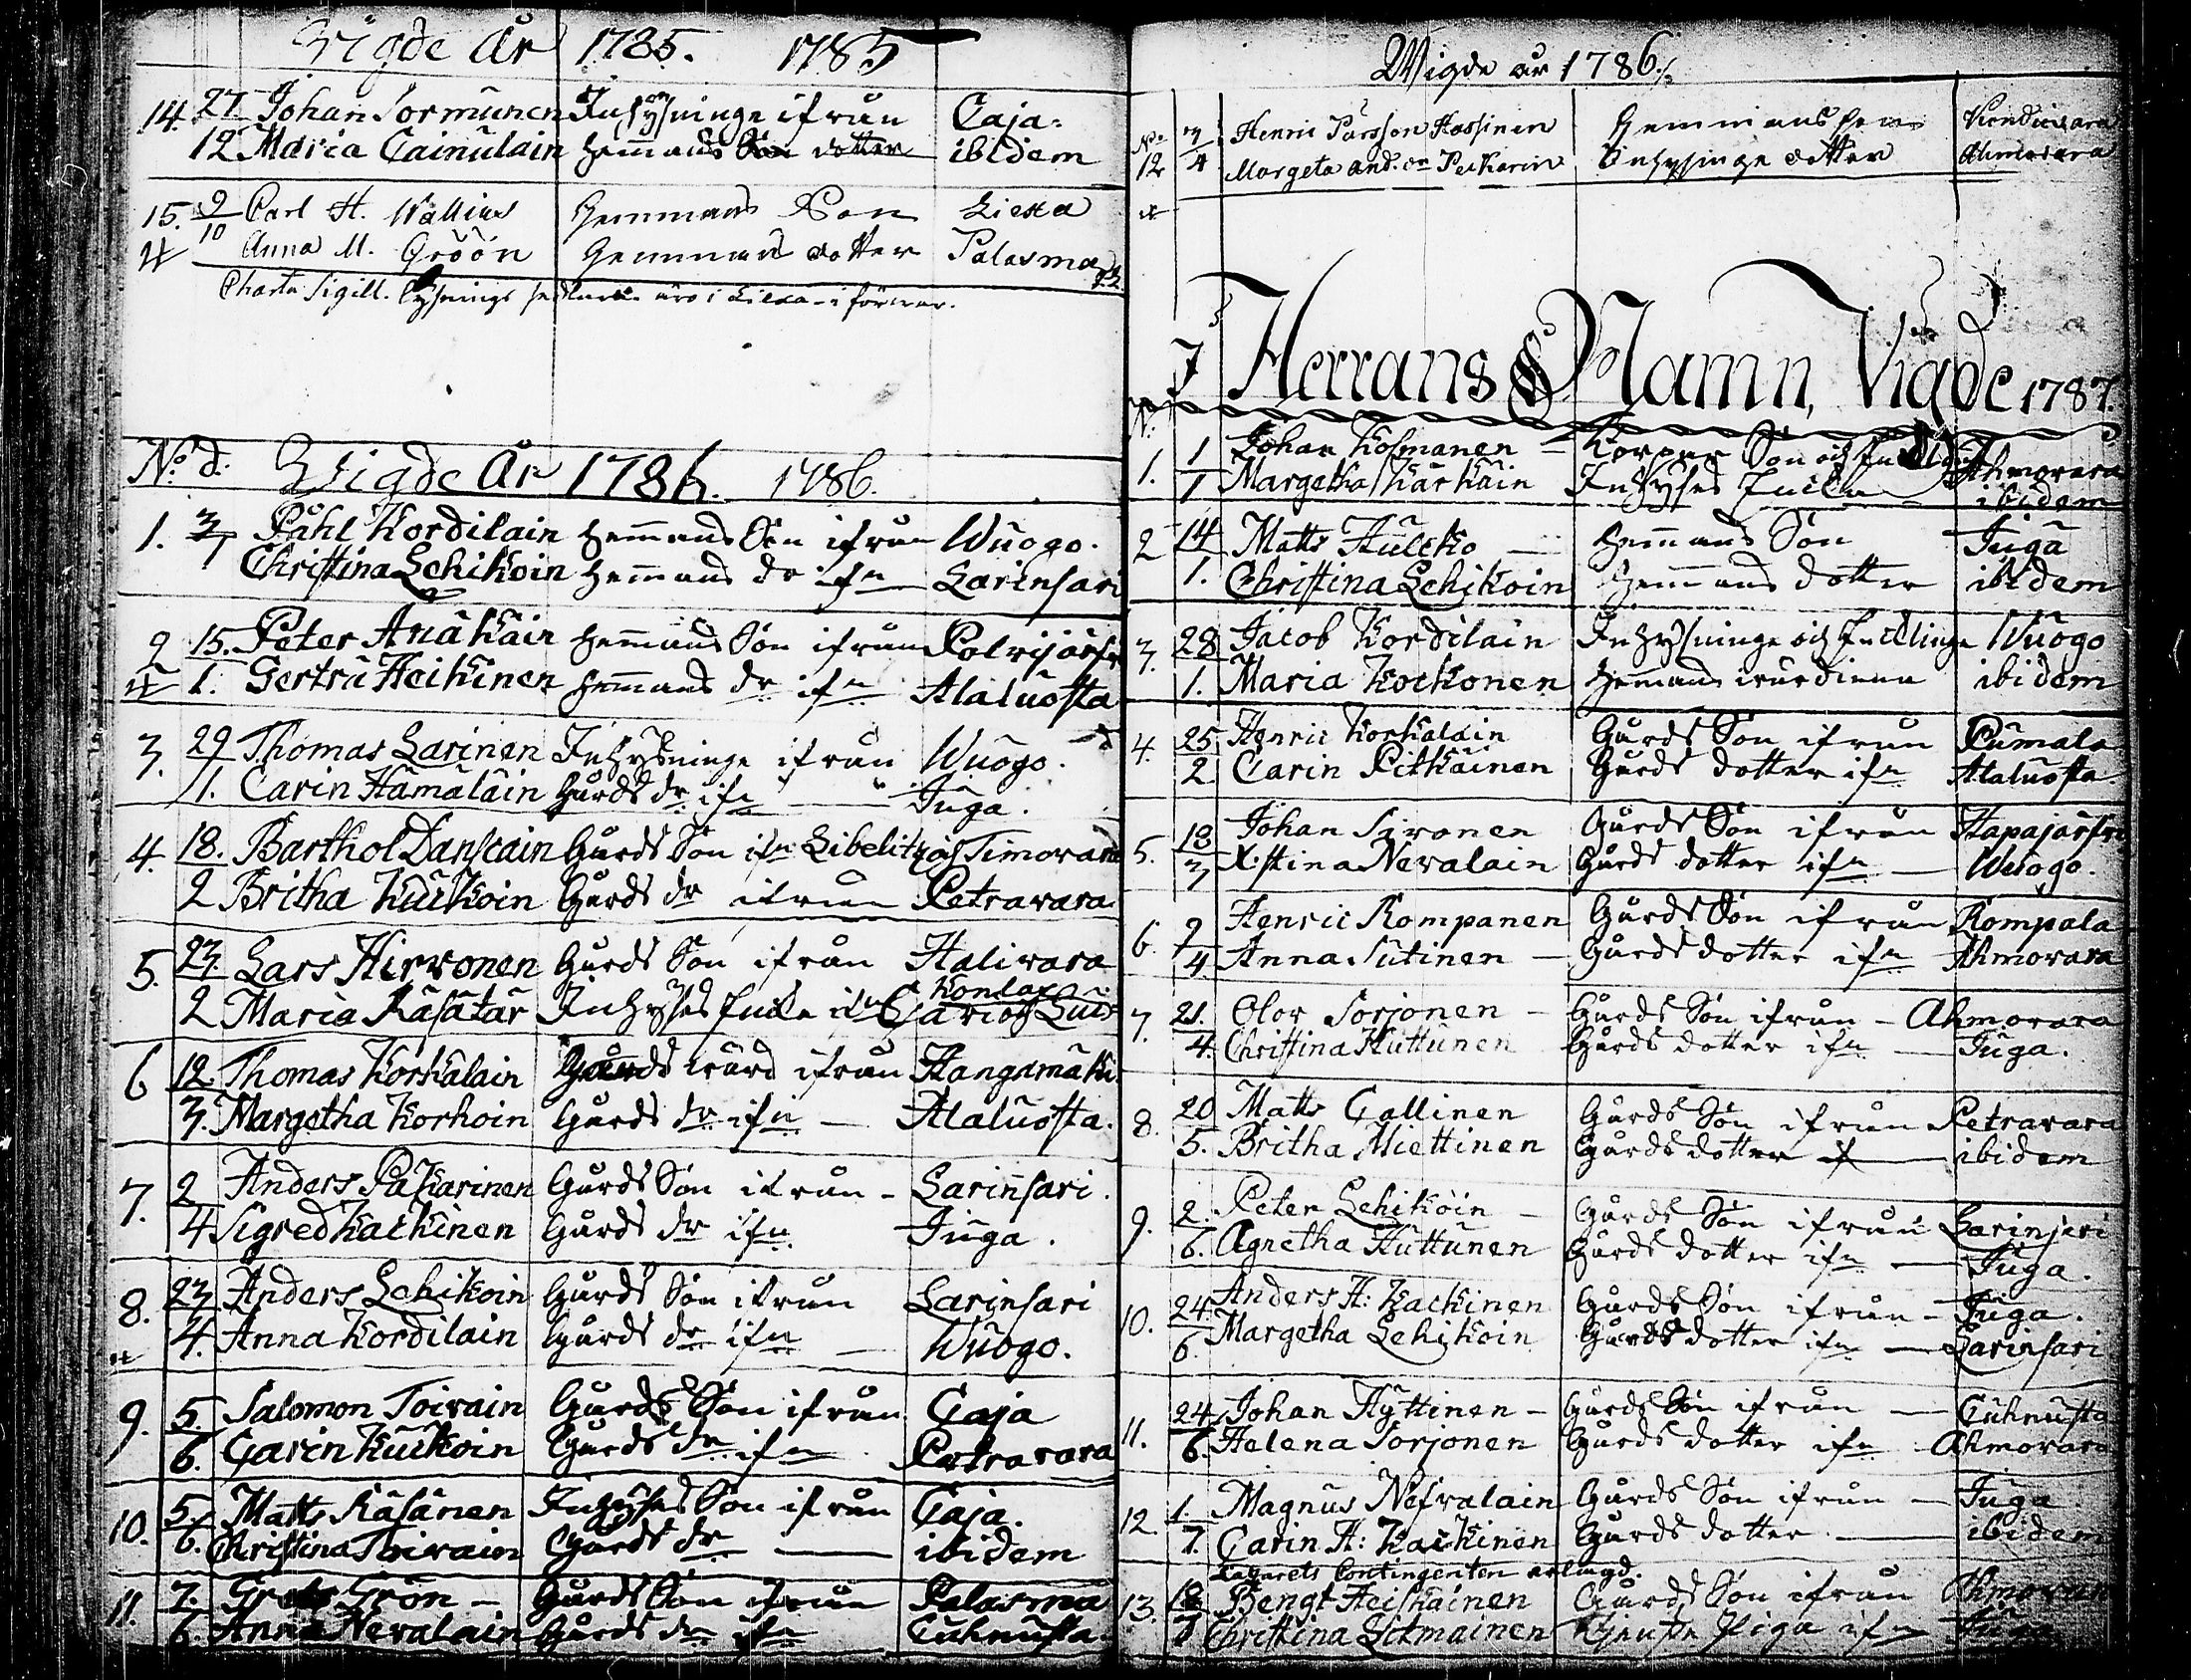 Vigde År 1785. 1785
14. 27 Johan Sormunen Inhysninge ifrån Caja.
12 Maria Cainulain Hemmans dotter ibidem
15. 9 Carl H. Wallius Hemmans Son Liexa
10 Anna M. Gröön Hemmans dotter Palasma
Charta Sigill. Lysnings äro i Liexa
No d. Vigde År 1786. 1786.
1. 3 Påhl Kordilain Hemmans Son ifrån Wuogo.
1 Christina Lehikoin Hemmans dr ifn Larinsari
2 15. Peter Anäkäin Hemmans Son ifrån Polvijärfvi
1. Gertru Heikinen Hemmans dr ifn Alaluosta
3. 29 Thomas Larinen Inhysninge ifrån Wuogo.
1. Carin Hämäläin Gårds dr ifn Juga.
4. 18. Barthol Danscain Gårds Son ifn Libelitz och Timovara
2 Britha Kuckoin Gårds dr ifrån Petravara
5. 23. Lars Hirvonen Gårds Son ifrån Halivara
Kontax
2 Maria Räsätär Inhyses Encka ifn
6 12 Thomas Korkalain Gårds värd ifrån Hangamäki
3. Margetha Korhoin Gårds dr ifn Alaluosta.
7. 2 Anders Pakarinen Gårds Son ifrån Larinsari.
4 Sigred Kackinen Gårds dr ifn Juga.
8. 23 Anders Lehikoin Gårds Son ifrån Larinsari
4. Anna Kordilain Gårds dr ifn Wuogo.
9. 5. Salomon Toivain Gårds Son ifrån Caja
6. Carin Kuckoin Gårds dr ifn Petravara
10. 5. Matts Räsänen Inhyses Son ifrån Caja.
6. Christina Toivain Gårds dr ibidem
11. 7. Grön Gårds Son ifrån Palasma
6. Anna Nevalain Gårds dr ifn Cuhnusta.
Wigde år 1786
No 7 Henric Pärsson Hassinen Hemmans son
12 4 Margeta And. dr Peckarin Inhysinge dotter Ahmovara
I Herrans Namn, Vigde 1787.
No
1. 1 Johan Kosmanen Son och Ahmovara
1 Margetha Kärkäin Inhyses Encka ibidem
2 14 Matts Hulcko Hemmans Son Juga
1. Christina Lehikoin Hemmans dotter ibidem
3. 28 Jacob Kordilain Inhysninge och Encklinge Wuogo
1. Maria Kockonen Hemmans värdinna ibidem
4. 25 Henric Korkalain Gårds Son ifrån Pumala
2 Carin Pitkäinen Gårds dotter ifn Alaluosta
5. 18 Johan Sivonen Gårds Son ifrån Hapajärfvi
3 X:stina Nevalain Gårds dotter ifn Wuogo.
6. 9 Henric Rompanen Gårds Son ifrån Rompala
4. Anna Sutinen Gårds dotter ifn Ahmovara
7. 21. Olov Sorjonen Gårds Son ifrån Ahmovara
4. Christina Huttunen Gårds dotter ifn Juga.
8. 20 Matts Gallinen Gårds Son ifrån Petravara
5. Britha Miettinen Gårds dotter ibidem
9. 2. Peter Lehikoin Gårds Son ifrån Larinsari
6. Agnetha Huttunen Gårds dotter ifn Juga.
10. 24. Anders H: Kackinen Gårds Son ifrån Juga.
6. Margetha Lehikoin Gårds dotter ifn Larinsari
11. 24. Johan Hyttinen Gårds Son ifrån Cuhnusta
6. Helena Sorjonen Gårds dotter ifn Ahmovara
12. 1. Magnus Nefvalain Gårds Son ifrån Juga
7. Carin H: Kackinen Gårds dotter ibidem
Lazarets Contingenten erlagd.
13. 18 Bengt Heiskainen Gårds Son ifrån Ahmovara
Christina Piga ifn Juga